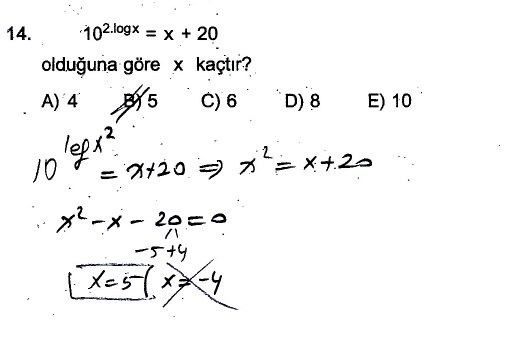 14. 10^2.logx = x + 20
olduğuna göre x kaçtır?
A) 4 B) 5 C) 6 D) 8 E) 10
10^logx² = x+20 ⇒ x² = x+20
x² - x - 20 = 0
-5 +4
x = 5 x = -4